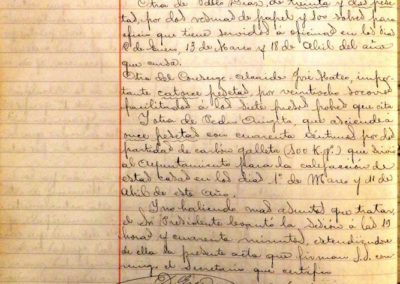 Otra de Pablo Díaz, de treinta y dos pese-
tas, por dos resmas de papel y 500 sobres para
oficio que tiene servidos a oficinas en los días
8 de Enero, 13 de Marzo y 18 de Abril del año
que cursa.
Otra del Conserge-Alcaide José Mateo, impor-
tante catorce pesetas, por veintiocho socorros
facilitados a los siete pobres que cita
Y otra de Pedro que asciende a
once pesetas con cuarenta céntimos por dos
partidas de carbón galleta (100 Kgs) que sirvió
al Ayuntamiento para la calefacción de
estas casas en los días 1º de Marzo y 11 de
Abril de este Año.
Y no habiendo más asuntos que tratar,
el Sr. Presidente levantó la sesión a las 19
horas y cuarenta minutos, extendiéndose
de ella la presente acta que firman S.S. con-
migo el Secretario que certifico